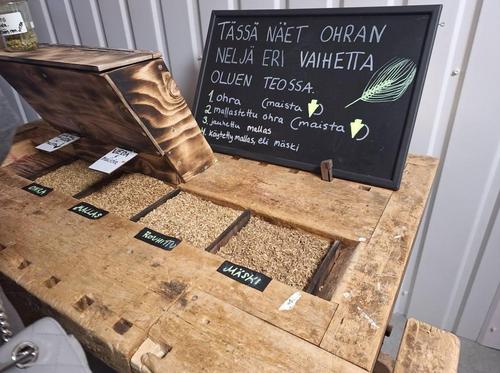 TÄSSÄ NÄET OHRAN
NELJÄ ERI VAIHETTA
OLUEN TEOSSA.
1. ohra (maista)
2. mallastettu ohra (maista)
3. jauhettu mallas
4. käytetty mallas, eli mäski
OHRA
MALLAS
ROUHITTU
MÄSKI